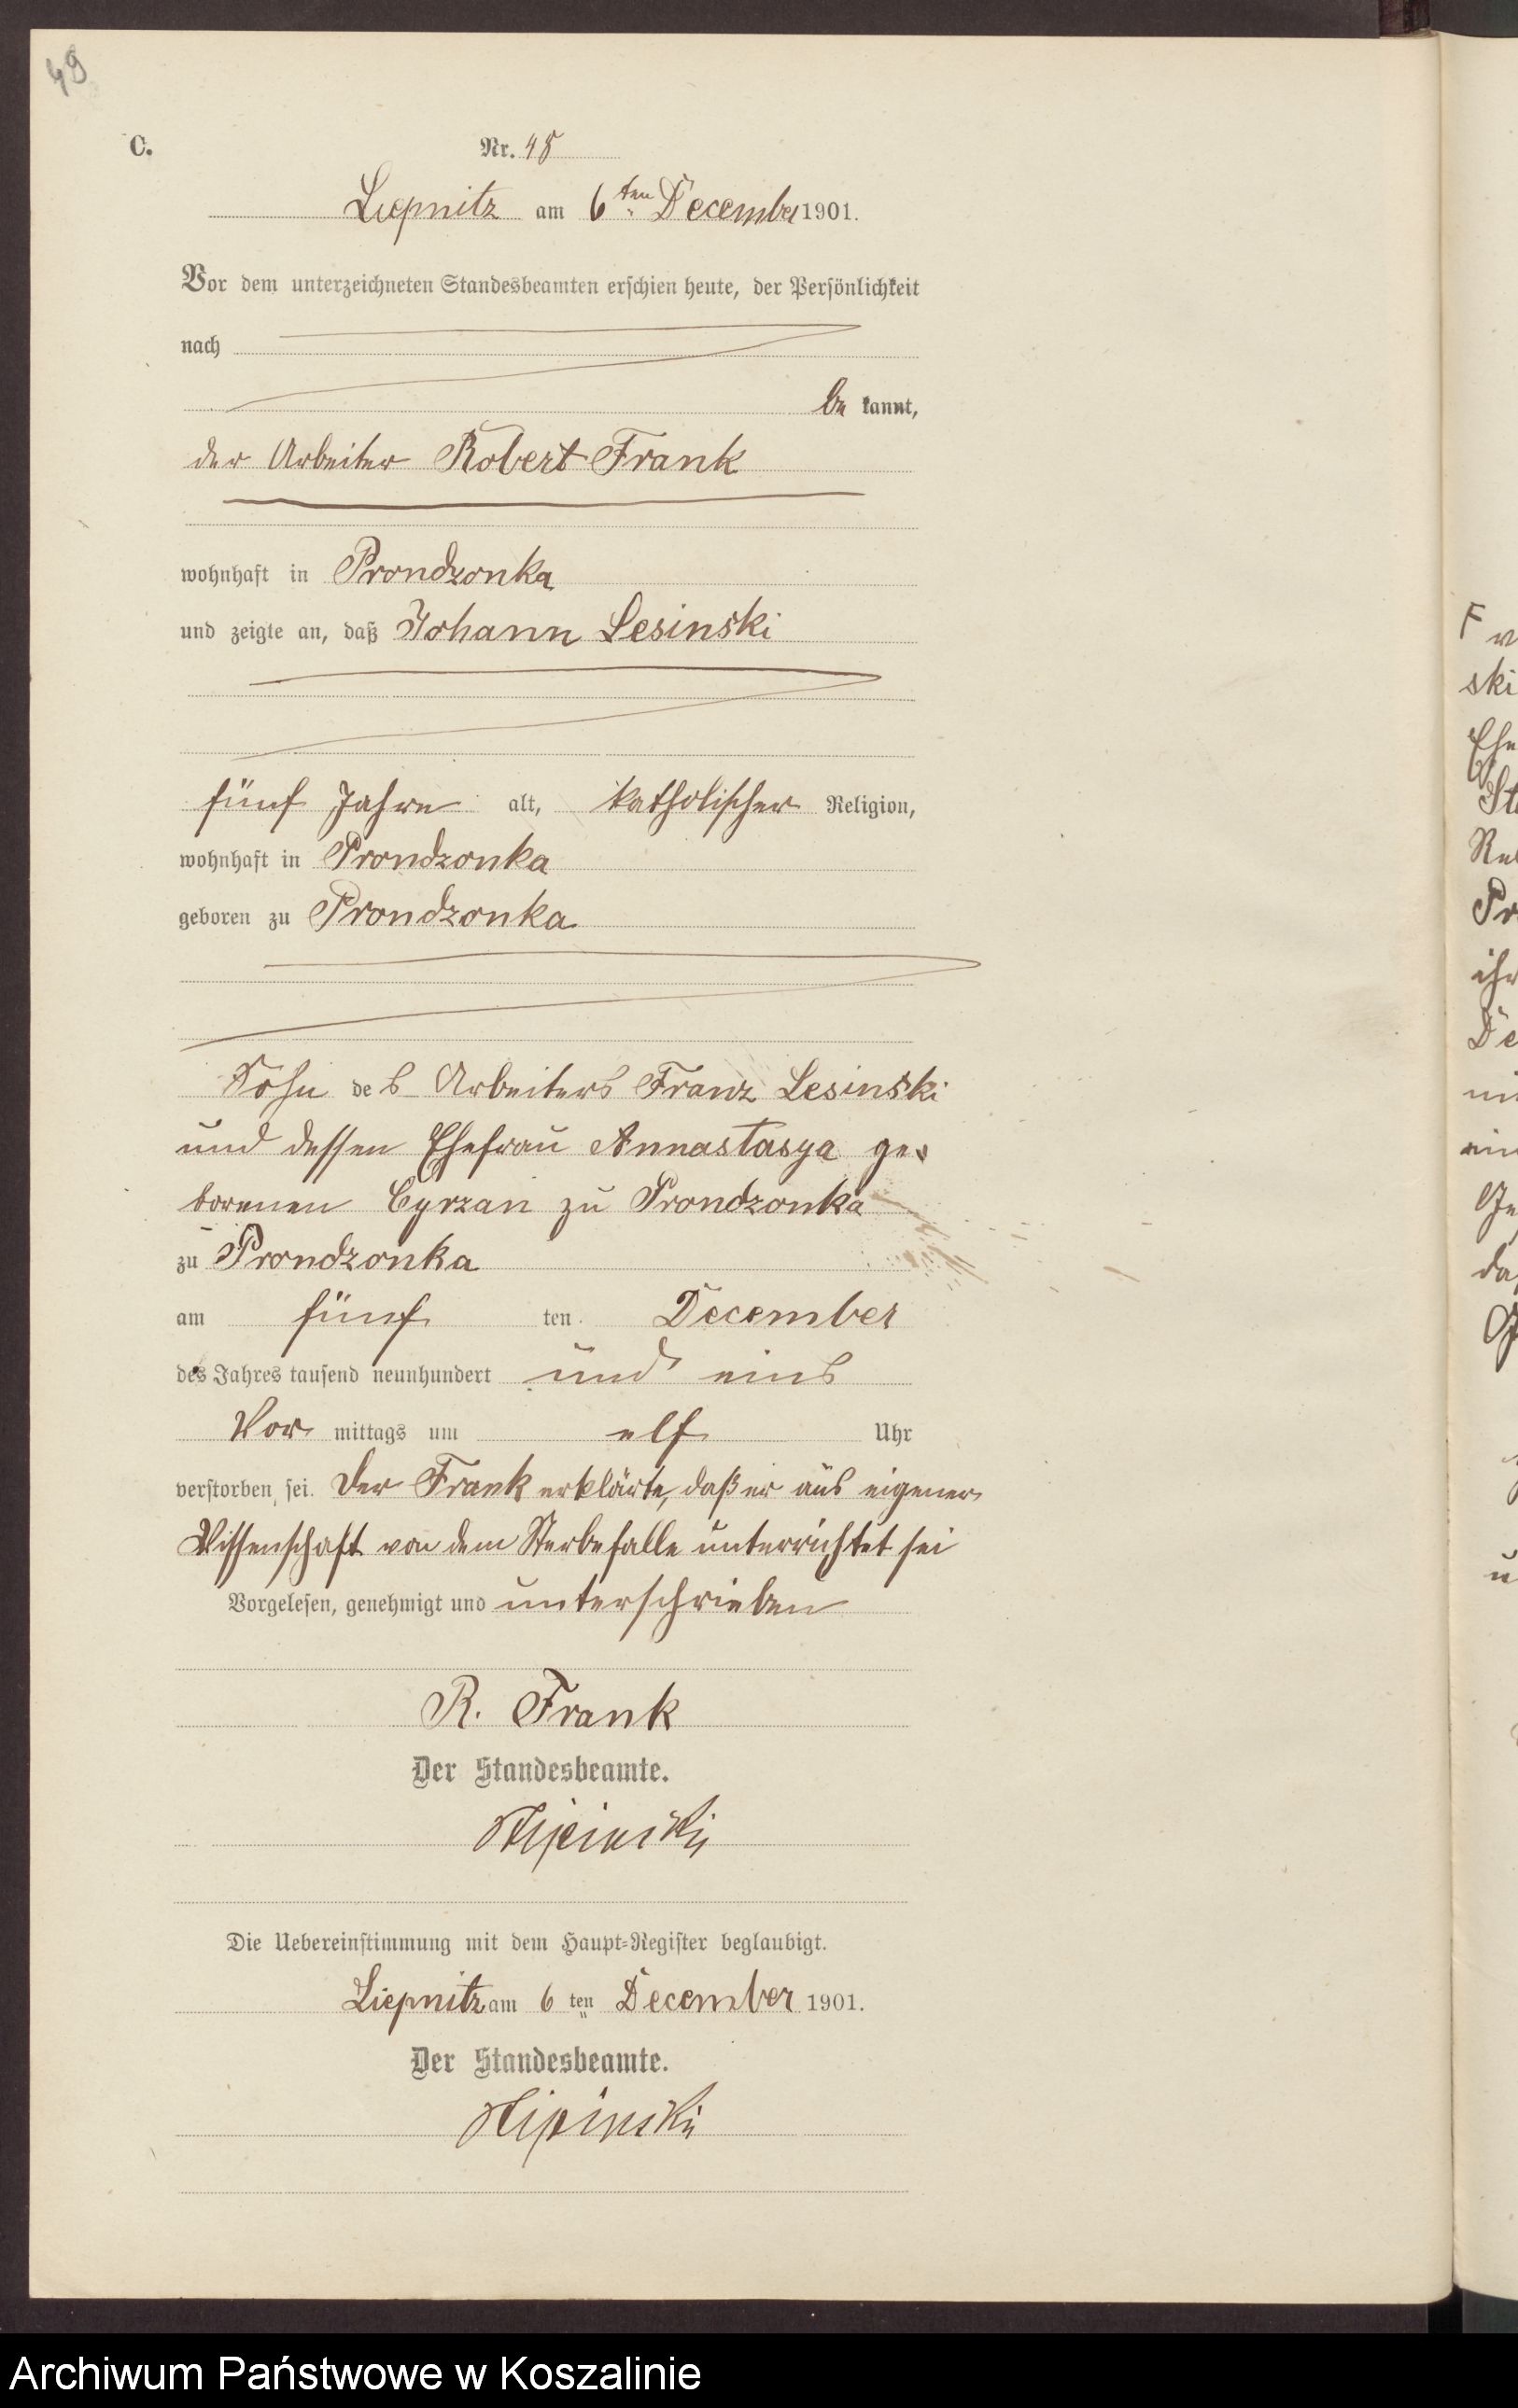 49
C.
Nr. 48
Liepnitz am 6ten December 1901.
Vor dem unterzeichneten Standesbeamten erschien heute, der Persönlichkeit
nach
be kannt,
der Arbeiter Robert Frank
wohnhaft in Prondzonka
und zeigte an, daß Johann Lesinski
fünf Jahre alt, katholischer Religion,
wohnhaft in Prondzonka
geboren zu Prondzonka
Sohn des Arbeiters Franz Lesinski
und dessen Ehefrau Annastasya ge-
borenen Cyrzan zu Prondzonka
zu Prondzonka
am fünf ten December
des Jahres tausend neunhundert und eins
Vor mittags um elf Uhr
verstorben sei. Der Frank erklärte, daß er aus eigener
Wissenschaft von dem Sterbefalle unterrichtet sei
Vorgelesen, genehmigt und unterschrieben
R. Frank
Der Standesbeamte.
Die Uebereinstimmung mit dem Haupt-Register beglaubigt.
Liepnitz am 6 ten December 1901.
Der Standesbeamte.
Archiwum Państwowe w Koszalinie